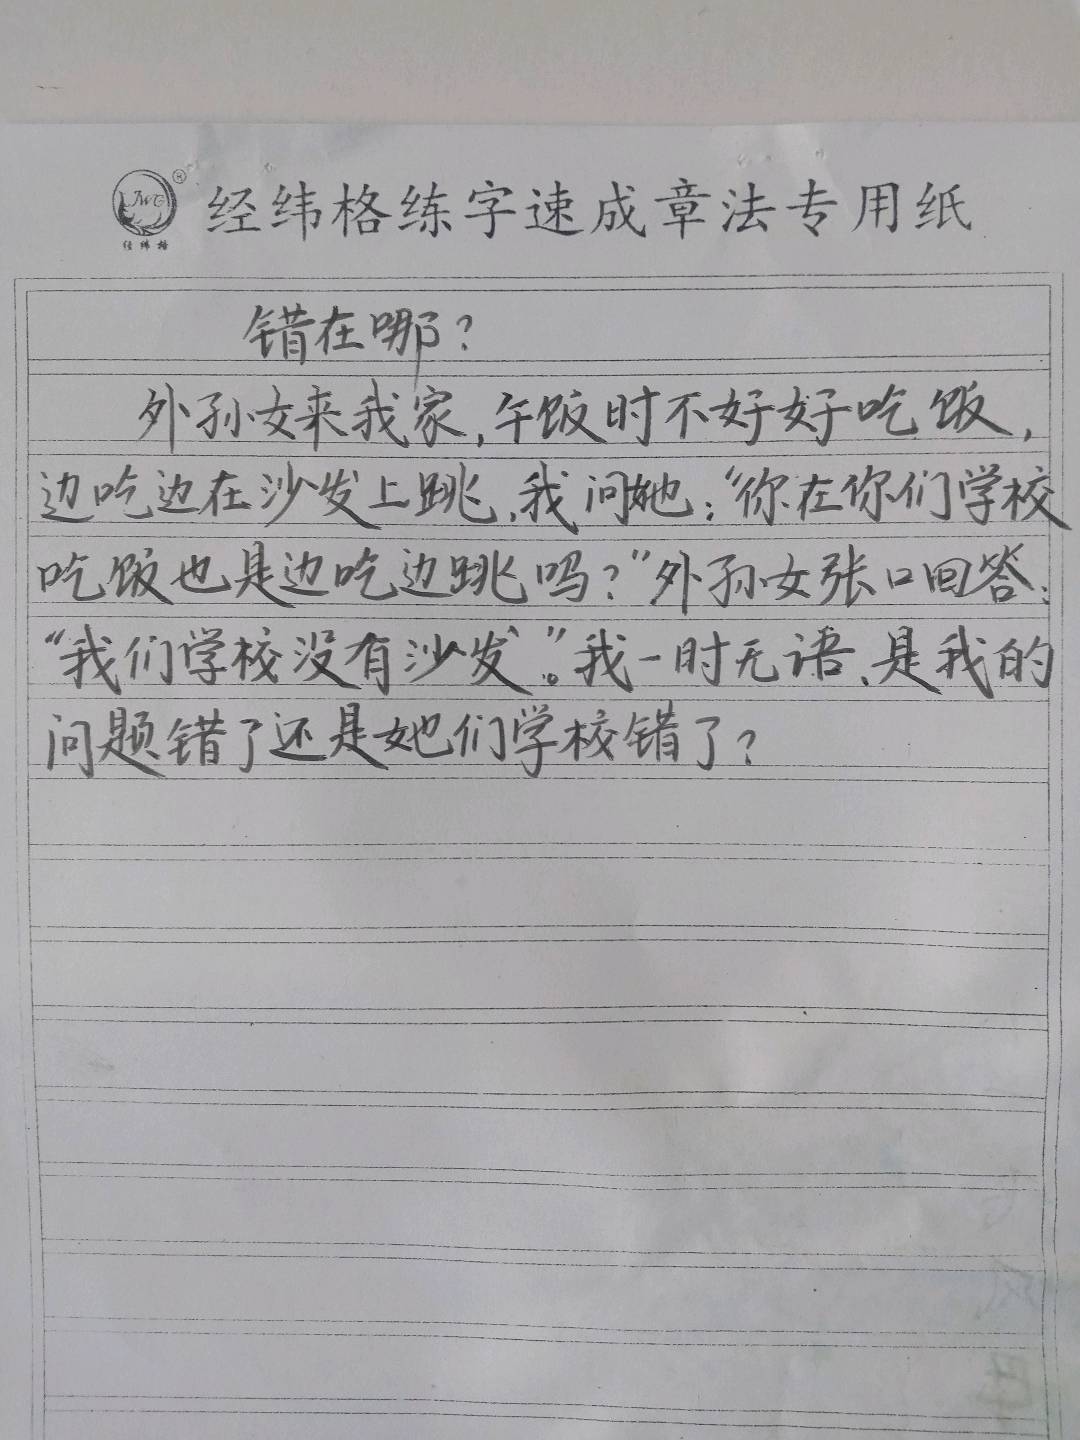 JWG ®
经纬格
经纬格练字速成章法专用纸
错在哪？
外孙女来我家,午饭时不好好吃饭,
边吃边在沙发上跳,我问她:“你在你们学校
吃饭也是边吃边跳吗？”外孙女张口回答:
“我们学校没有沙发”。我一时无语,是我的
问题错了还是她们学校错了？